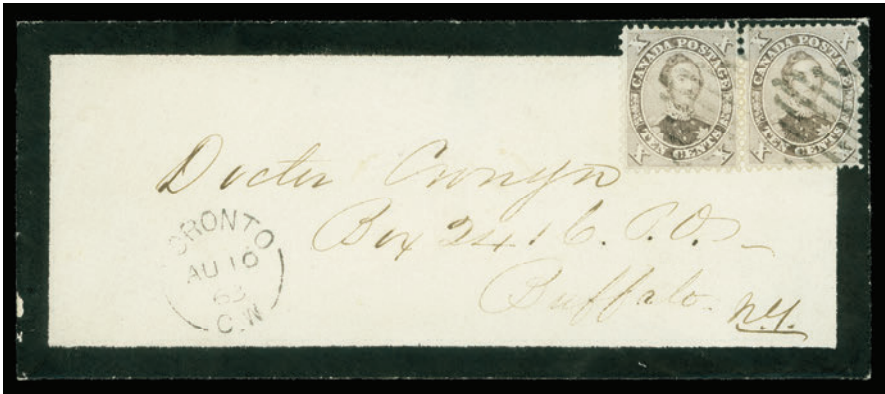 X CANADA POSTAGE X
X TEN CENTS X
X CANADA POSTAGE X
X TEN CENTS X
Doctor Cronyn
Box 2416. P.O.
Buffalo. N.Y.
TORONTO
AU 10
63
C.W